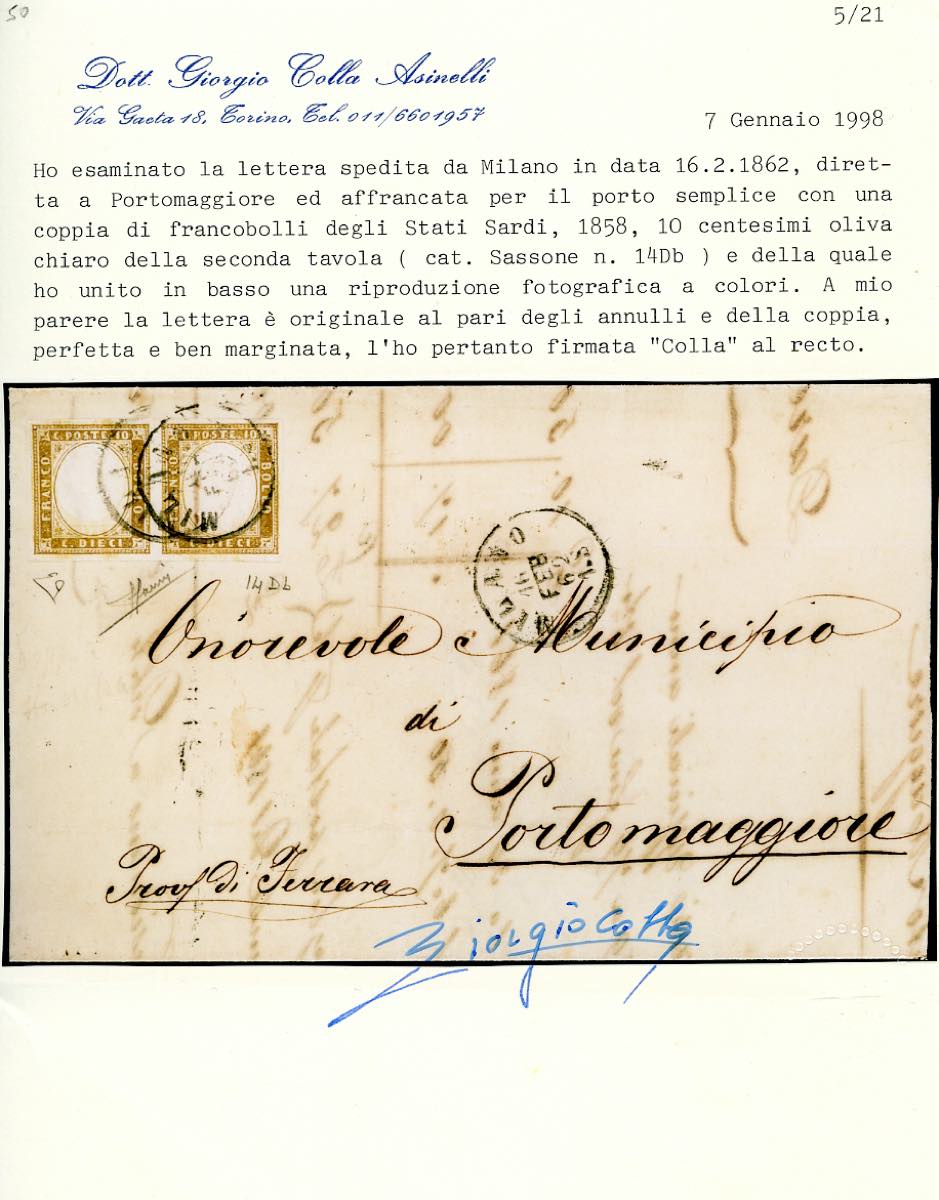 50
5/21
Dott. Giorgio Colla Asinelli
Via Gaeta 18, Torino, Tel. 011/6601957
7 Gennaio 1998
Ho esaminato la lettera spedita da Milano in data 16.2.1862, diret-
ta a Portomaggiore ed affrancata per il porto semplice con una
coppia di francobolli degli Stati Sardi, 1858, 10 centesimi oliva
chiaro della seconda tavola ( cat. Sassone n. 14Db ) e della quale
ho unito in basso una riproduzione fotografica a colori. A mio
parere la lettera è originale al pari degli annulli e della coppia,
perfetta e ben marginata, l'ho pertanto firmata "Colla" al recto.
C. POSTE 10
C. POSTE 10
FRANCO
BOLLO
C. DIECI
C. DIECI
MILANO
MILANO
16
FEB
62
14Db
Onorevole Municipio
di
Portomaggiore
Prov di Ferrara
Giorgio Colla